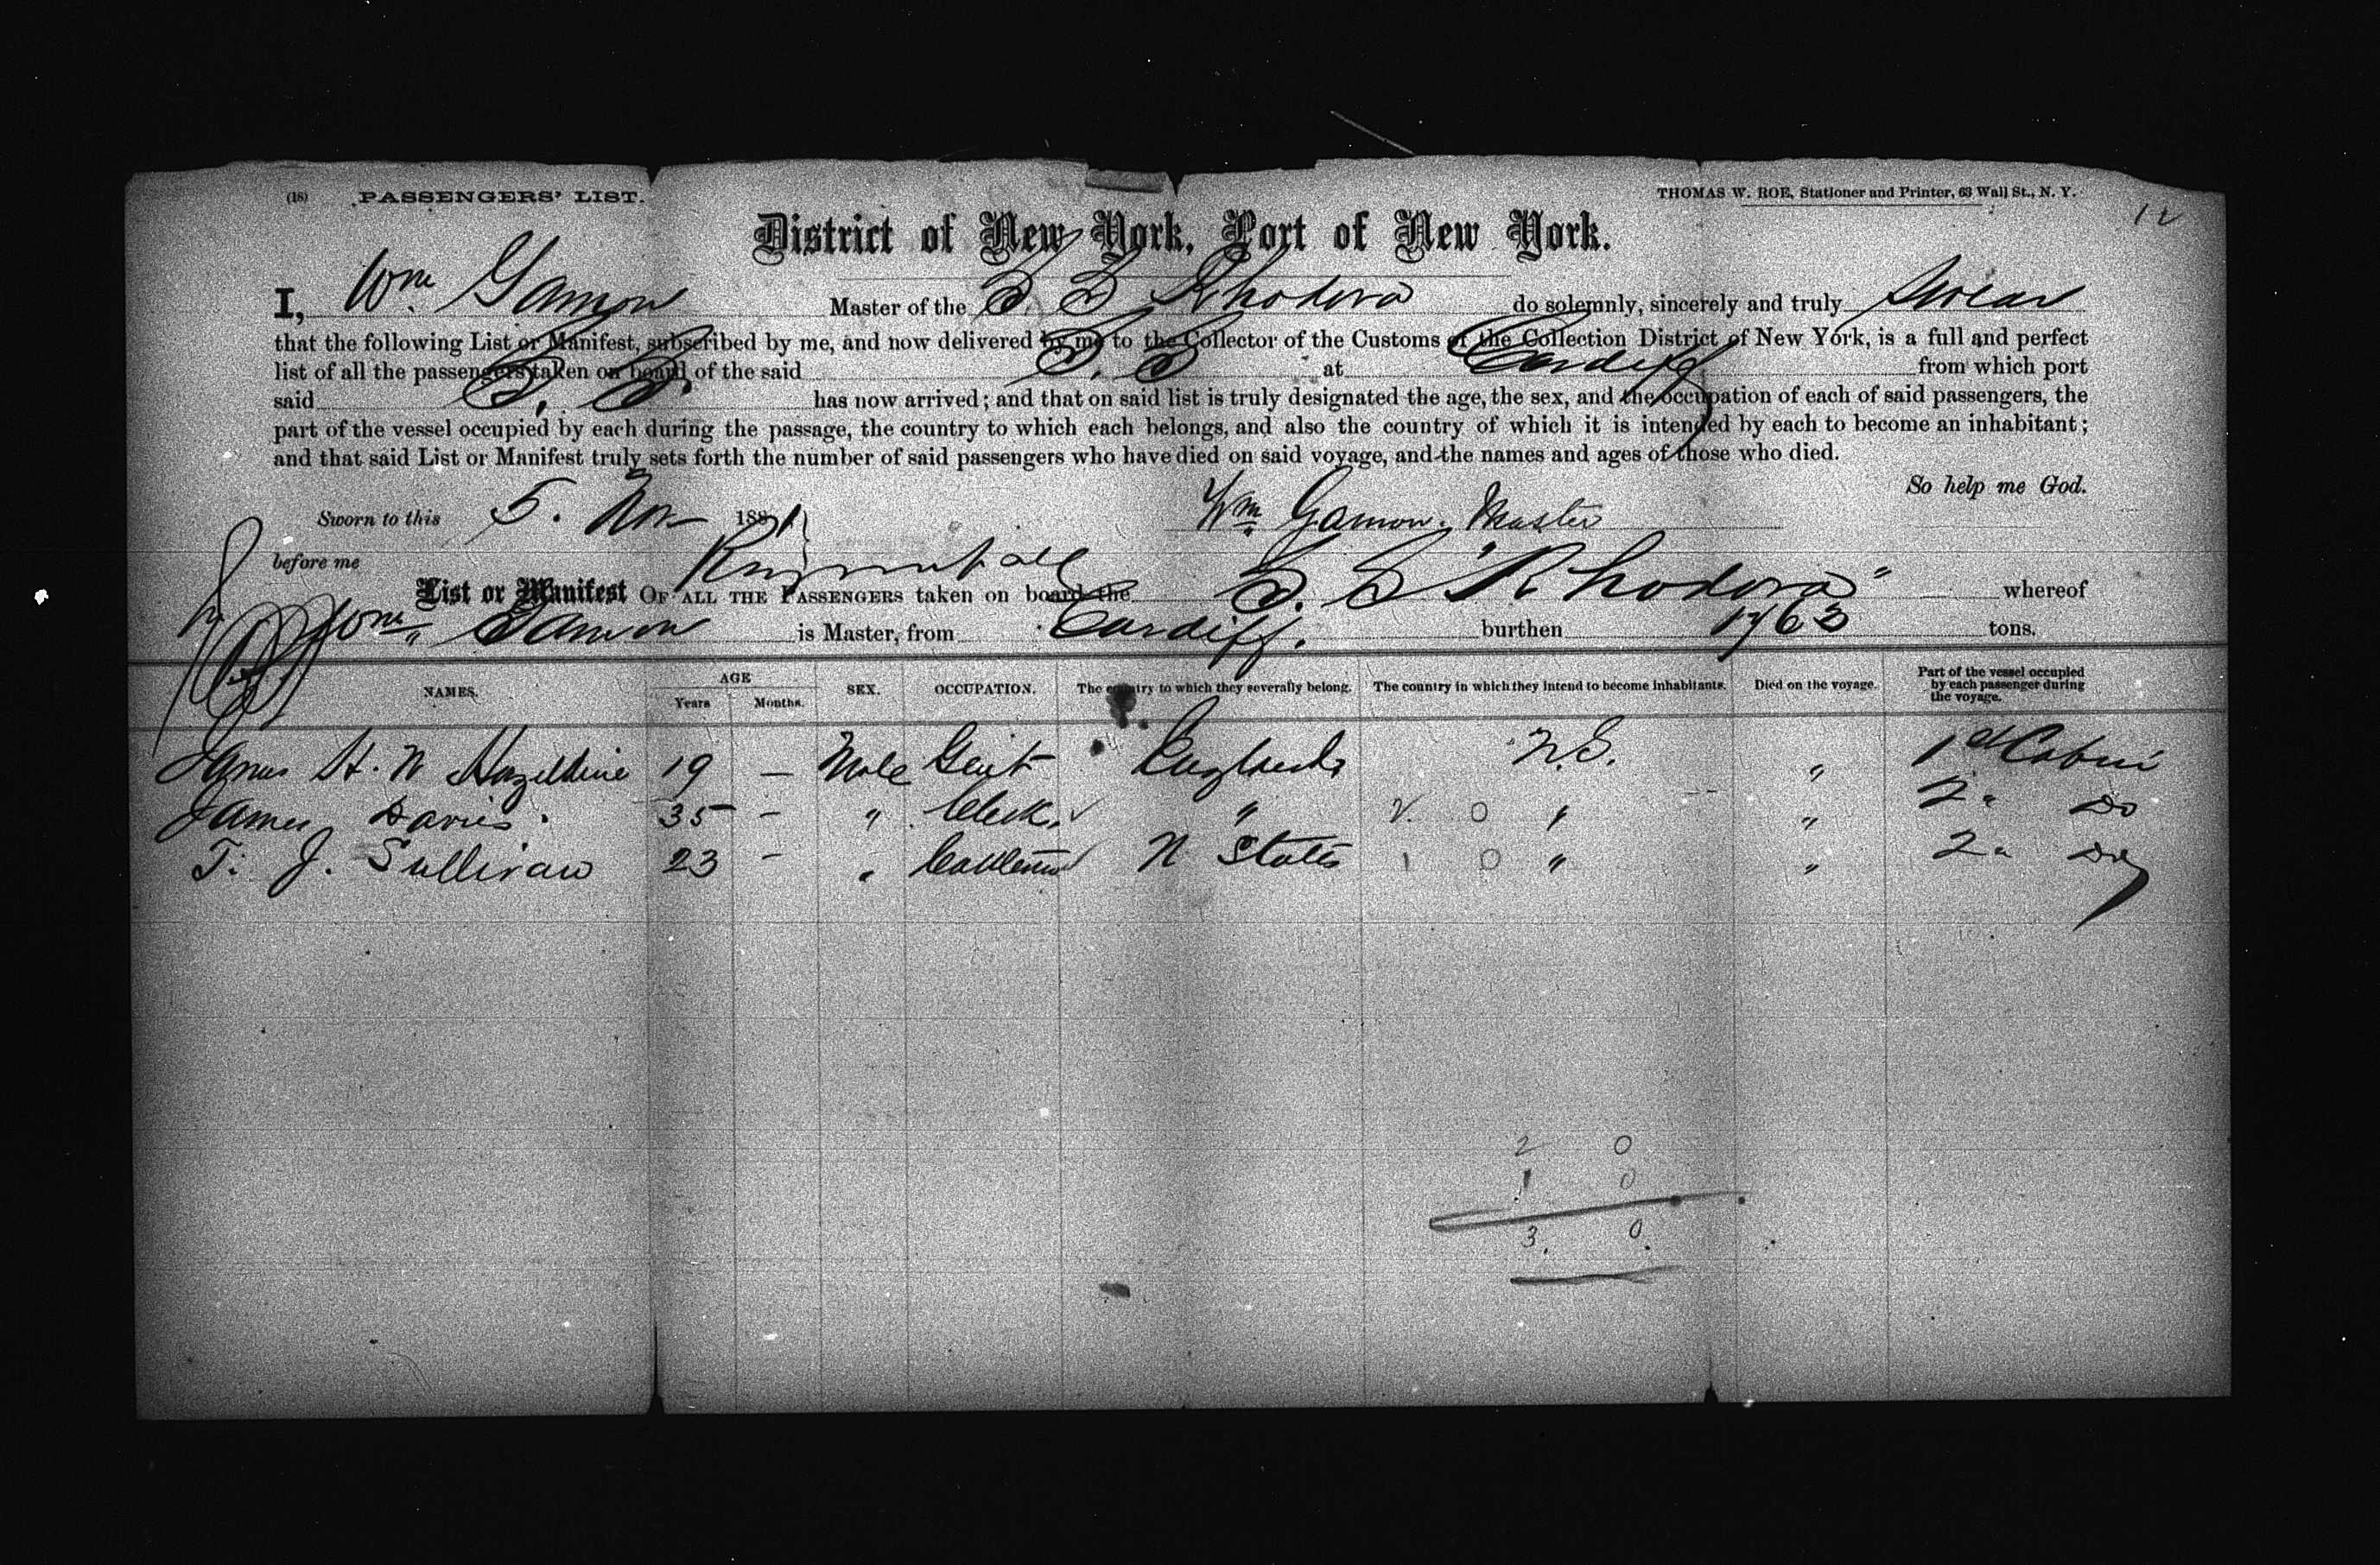 (18) PASSENGERS' LIST. THOMAS W. ROE, Stationer and Printer, 63 Wall St., N. Y.
12
District of New York, Port of New York.
I, Wm Gamon Master of the S. S Rhodora do solemnly, sincerely and truly swear
that the following List or Manifest, subscribed by me, and now delivered by me to the Collector of the Customs of the Collection District of New York, is a full and perfect
list of all the passengers taken on board of the said S. S at Cardiff from which port
said S. S. has now arrived; and that on said list is truly designated the age, the sex, and the occupation of each of said passengers, the
part of the vessel occupied by each during the passage, the country to which each belongs, and also the country of which it is intended by each to become an inhabitant;
and that said List or Manifest truly sets forth the number of said passengers who have died on said voyage, and the names and ages of those who died.
So help me God.
Sworn to this 5. Nov 1881 Wm Gamon. Master
before me
List or Manifest OF ALL THE PASSENGERS taken on board the S. S "Rhodora" whereof
Wm Gamon is Master, from Cardiff. burthen 1763 tons.
NAMES. AGE Years Months. SEX. OCCUPATION. The country to which they severally belong. The country in which they intend to become inhabitants. Died on the voyage. Part of the vessel occupied by each passenger during the voyage.
James H. N Hazeldine 19 — Male Gent England U.S. " 1st Cabin
James Davies. 35 - " Clerk. " 0 " " 2 " Do
T. J. Sullivan 23 - " U States 1 0 " " 2 " Do
2 0
1 0
3. 0.